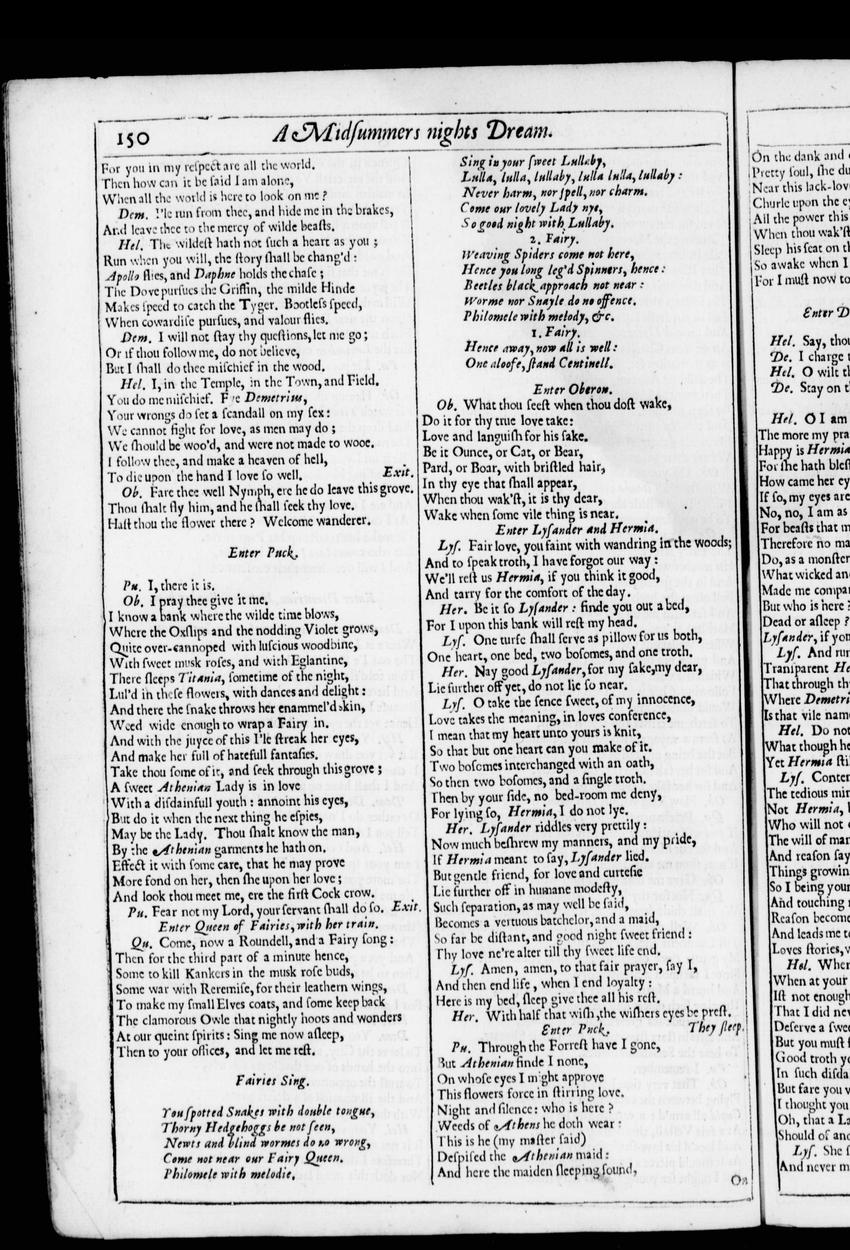 150
A Midſummers nights Dream.
For you in my reſpect are all the world.
Then how can it be ſaid I am alone,
When all the world is here to look on me?
Dem. I'le run from thee, and hide me in the brakes,
And leave thee to the mercy of wilde beaſts.
Hel. The wildeſt hath not ſuch a heart as you;
Run when you will, the ſtory ſhall be chang'd:
Apollo flies, and Daphne holds the chaſe;
The Dove purſues the Griffin, the milde Hinde
Makes ſpeed to catch the Tyger. Bootleſs ſpeed,
When cowardiſe purſues, and valour flies.
Dem. I will not ſtay thy queſtions, let me go;
Or if thou follow me, do not believe,
But I ſhall do thee miſchief in the wood.
Hel. I, in the Temple, in the Town, and Field,
You do me miſchief. Fye Demetrius,
Your wrongs do ſet a ſcandall on my ſex:
We cannot fight for love, as men may do;
We ſhould be woo'd, and were not made to wooe.
I follow thee, and make a heaven of hell,
To die upon the hand I love ſo well. Exit.
Ob. Fare thee well Nymph, ere he do leave this grove.
Thou ſhalt fly him, and he ſhall ſeek thy love.
Haſt thou the flower there? Welcome wanderer.
Enter Puck.
Pu. I, there it is.
Ob. I pray thee give it me.
I know a bank where the wilde time blows,
Where the Oxſlips and the nodding Violet grows,
Quite over-cannoped with luſcious woodbine,
With ſweet musk roſes, and with Eglantine,
There ſleeps Titania, ſometime of the night,
Lul'd in theſe flowers, with dances and delight:
And there the ſnake throws her enammel'd skin,
Weed wide enough to wrap a Fairy in.
And with the juyce of this I'le ſtreak her eyes,
And make her full of hatefull fantaſies.
Take thou ſome of it, and ſeek through this grove;
A ſweet Athenian Lady is in love
With a diſdainfull youth: annoint his eyes,
But do it when the next thing he eſpies,
May be the Lady. Thou ſhalt know the man,
By the Athenian garments he hath on.
Effect it with ſome care, that he may prove
More fond on her, then ſhe upon her love;
And look thou meet me, ere the firſt Cock crow.
Pu. Fear not my Lord, your ſervant ſhall do ſo. Exit.
Enter Queen of Fairies, with her train.
Qu. Come, now a Roundell, and a Fairy ſong:
Then for the third part of a minute hence,
Some to kill Kankers in the musk roſe buds,
Some war with Reremiſe, for their leathern wings,
To make my ſmall Elves coats, and ſome keep back
The clamorous Owle that nightly hoots and wonders
At our queint ſpirits: Sing me now aſleep,
Then to your offices, and let me reſt.
Fairies Sing.
You ſpotted Snakes with double tongue,
Thorny Hedgehoggs be not ſeen,
Newts and blind wormes do no wrong,
Come not near our Fairy Queen.
Philomele with melodie,
Sing in your ſweet Lullaby,
Lulla, lulla, lullaby, lulla lulla, lullaby:
Never harm, nor ſpell, nor charm.
Come our lovely Lady nye,
So good night with Lullaby.
2. Fairy.
Weaving Spiders come not here,
Hence you long leg'd Spinners, hence:
Beetles black approach not near:
Worme nor Snayle do no offence.
Philomele with melody, &c.
1. Fairy.
Hence away, now all is well:
One aloofe, ſtand Centinell.
Enter Oberon.
Ob. What thou ſeeſt when thou doſt wake,
Do it for thy true love take:
Love and languiſh for his ſake.
Be it Ounce, or Cat, or Bear,
Pard, or Boar, with briſtled hair,
In thy eye that ſhall appear,
When thou wak'ſt, it is thy dear,
Wake when ſome vile thing is near.
Enter Lyſander and Hermia.
Lyſ. Fair love, you faint with wandring in the woods;
And to ſpeak troth, I have forgot our way:
We'll reſt us Hermia, if you think it good,
And tarry for the comfort of the day.
Her. Be it ſo Lyſander: finde you out a bed,
For I upon this bank will reſt my head.
Lyſ. One turfe ſhall ſerve as pillow for us both,
One heart, one bed, two boſomes, and one troth.
Her. Nay good Lyſander, for my ſake, my dear,
Lie further off yet, do not lie ſo near.
Lyſ. O take the ſence ſweet, of my innocence,
Love takes the meaning, in loves conference,
I mean that my heart unto yours is knit,
So that but one heart can you make of it.
Two boſomes interchanged with an oath,
So then two boſomes, and a ſingle troth.
Then by your ſide, no bed-room me deny,
For lying ſo, Hermia, I do not lye.
Her. Lyſander riddles very prettily:
Now much beſhrew my manners, and my pride,
If Hermia meant to ſay, Lyſander lied.
But gentle friend, for love and curteſie
Lie further off in humane modeſty,
Such ſeparation, as may well be ſaid,
Becomes a vertuous batchelor, and a maid,
So far be diſtant, and good night ſweet friend:
Thy love ne're alter till thy ſweet life end.
Lyſ. Amen, amen, to that fair prayer, ſay I,
And then end life, when I end loyalty:
Here is my bed, ſleep give thee all his reſt.
Her. With half that wiſh, the wiſhers eyes be preſt.
Enter Puck. They ſleep.
Pu. Through the Forreſt have I gone,
But Athenian finde I none,
On whoſe eyes I might approve
This flowers force in ſtirring love.
Night and ſilence: who is here?
Weeds of Athens he doth wear:
This is he (my maſter ſaid)
Deſpiſed the Athenian maid:
And here the maiden ſleeping ſound,
On
On the dank and
Pretty ſoul, ſhe du
Near this lack-lov
Churle upon the ey
All the power this
When thou wak'ſt
Sleep his ſeat on th
So awake when I
For I muſt now to
Enter D
Hel. Say, thou
De. I charge t
Hel. O wilt th
De. Stay on t
Hel. O I am
The more my pra
Happy is Hermia
For ſhe hath bleſſ
How came her ey
If ſo, my eyes are
No, no, I am as
For beaſts that m
Therefore no ma
Do, as a monſter
What wicked and
Made me compar
But who is here?
Dead or aſleep?
Lyſander, if you
Lyſ. And run
Tranſparent He
That through thy
Where Demetri
Is that vile name
Hel. Do not
What though he
Yet Hermia ſti
Lyſ. Conten
The tedious min
Not Hermia, b
Who will not c
The will of man
And reaſon ſay
Things growin
So I being youn
And touching n
Reaſon become
And leads me to
Loves ſtories, w
Hel. Wher
When at your
Iſt not enough
That I did nev
Deſerve a ſwee
But you muſt f
Good troth yo
In ſuch diſda
But fare you w
I thought you
Oh, that a La
Should of ano
Lyſ. She ſ
And never m